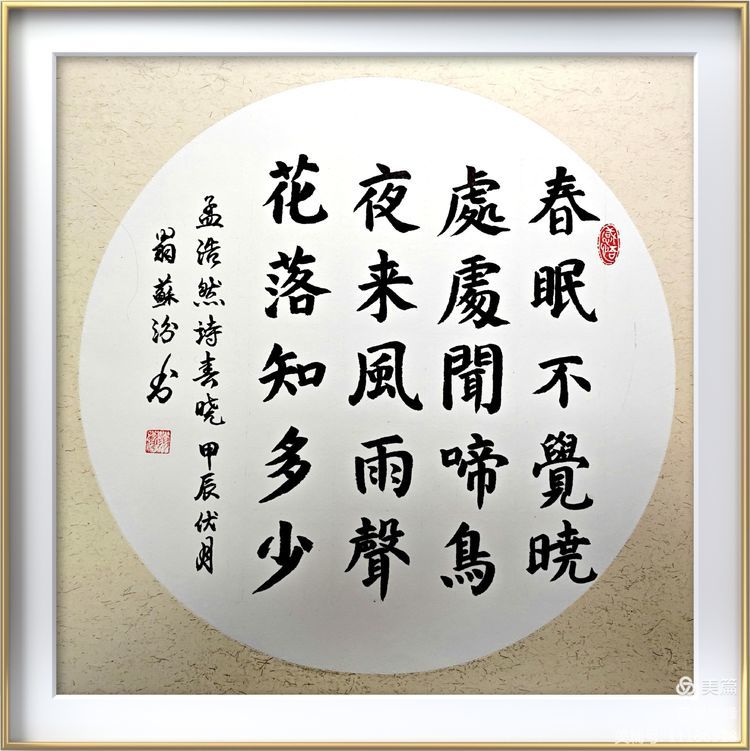 春眠不覺暁
處處聞啼鳥
夜来風雨聲
花落知多少
孟浩然诗春晓 甲辰伏月
翁蘇汾书
感悟
美篇